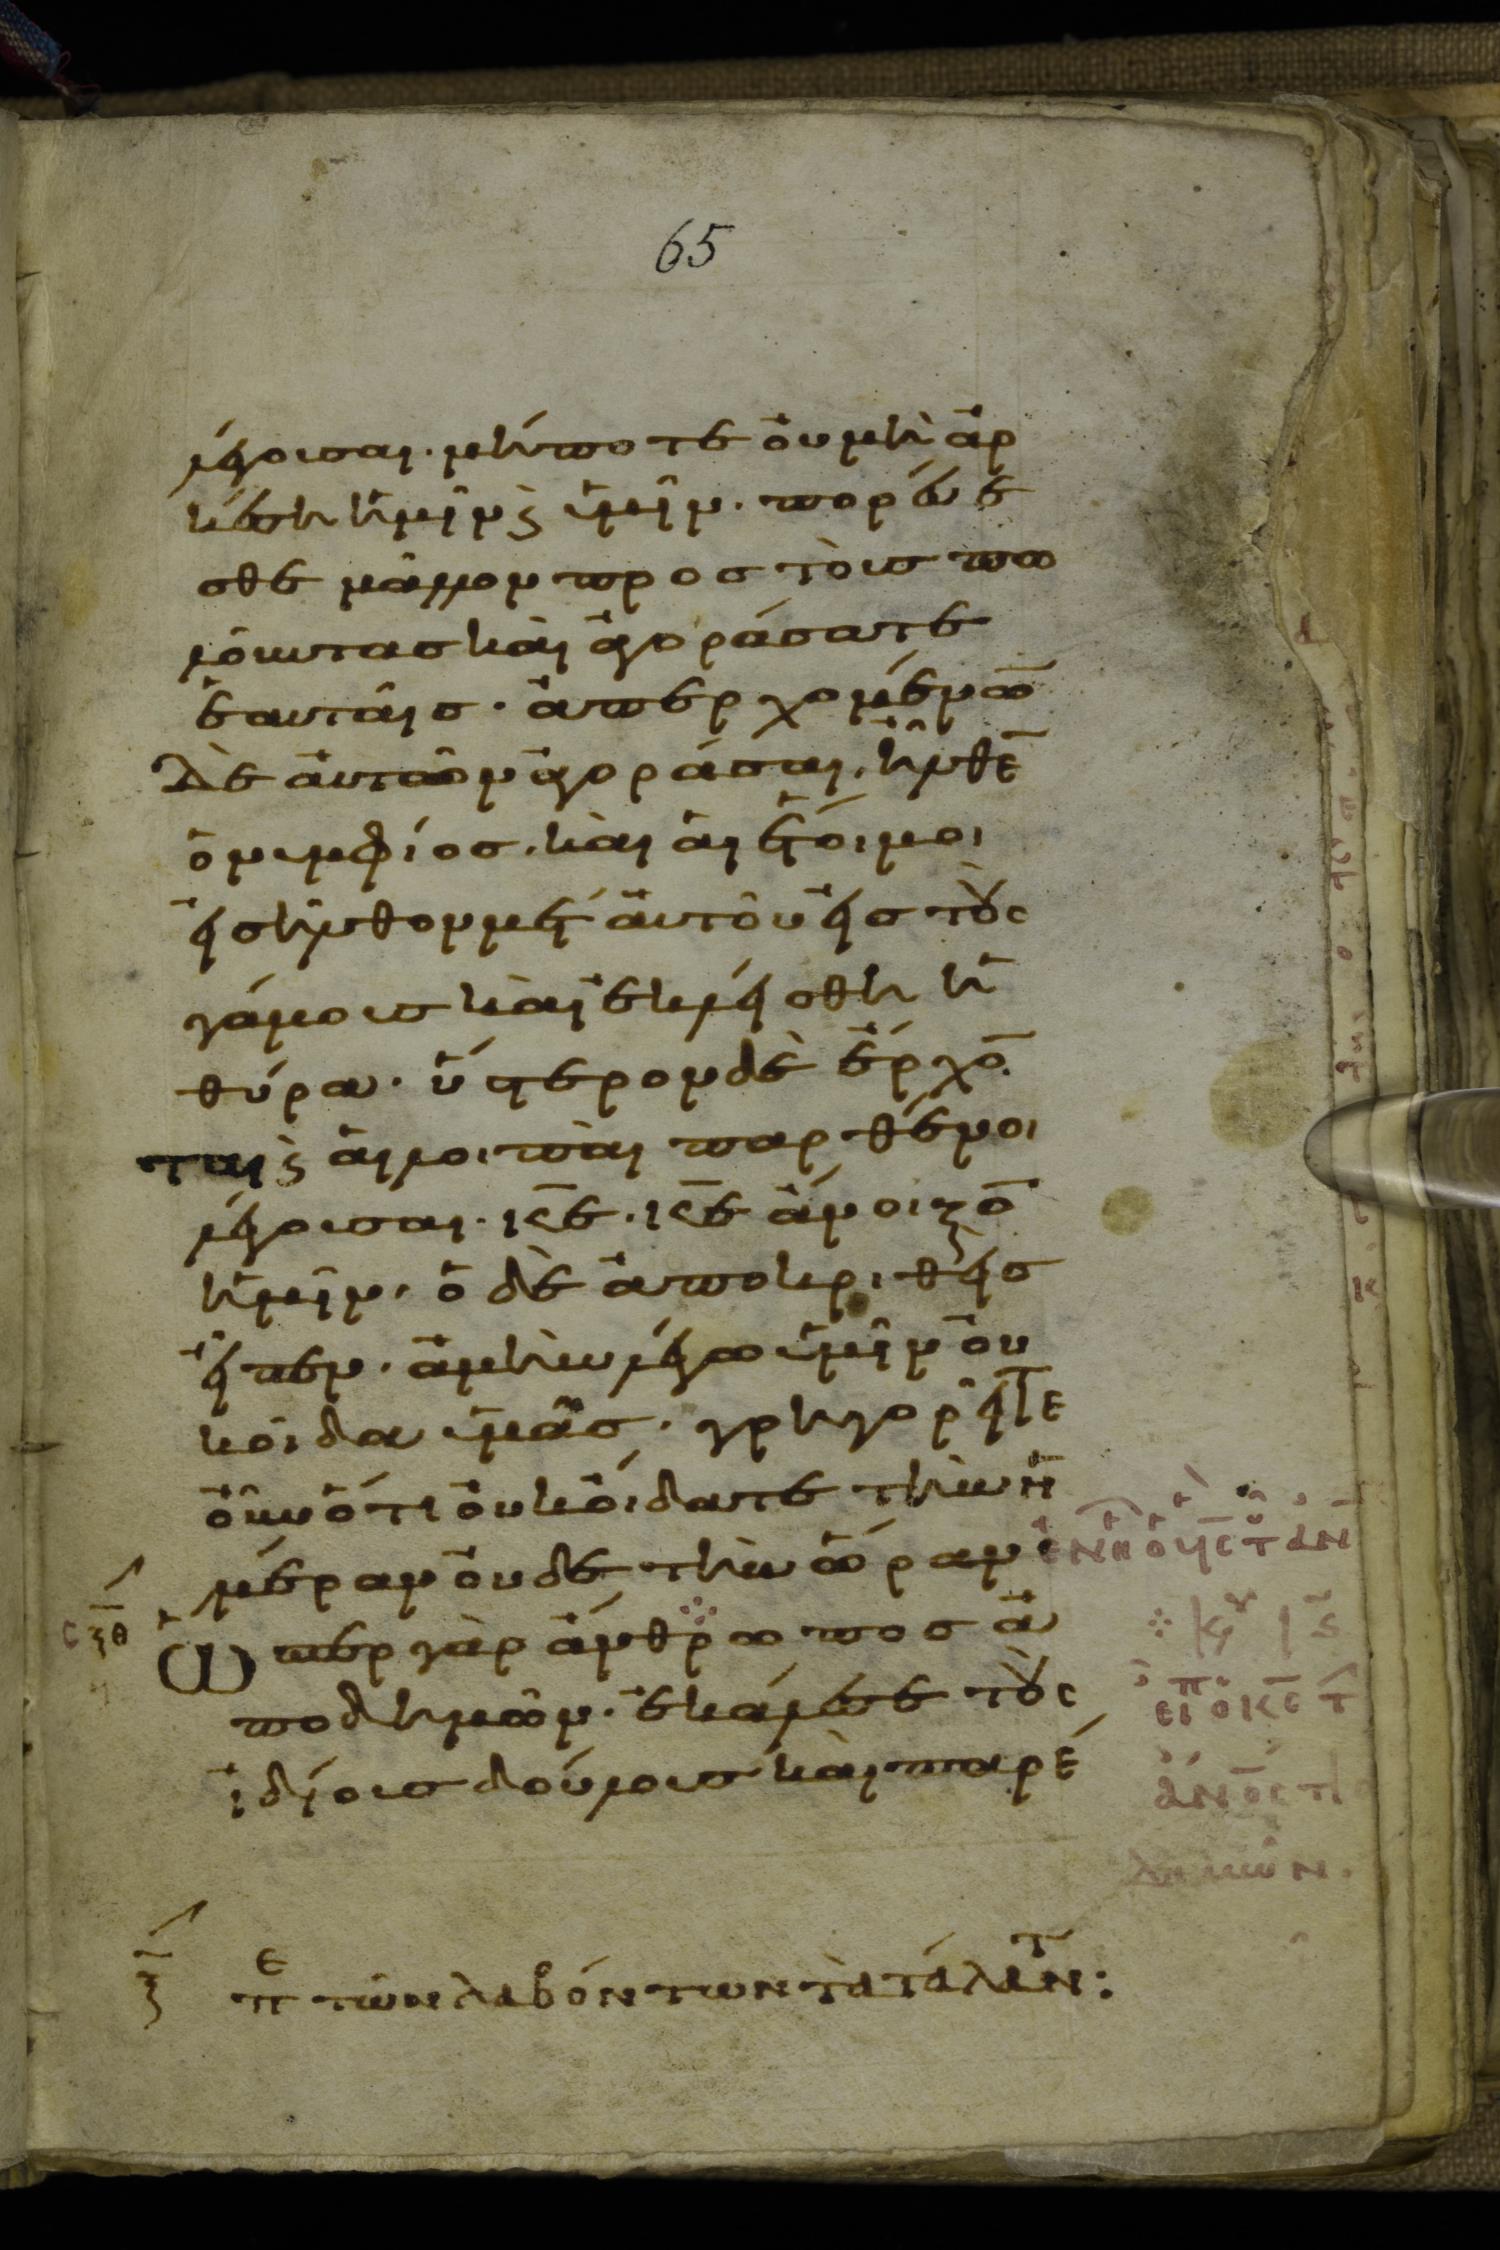 65
λέγουσαι. μήποτε οὐ μὴ ἀρ
κέση ἡμῖν ϗ ὑμῖν. πορεύε
σθε μᾶλλον προς τοὺς πω
λοῦντας καὶ ἀγοράσατε
ἑαυταῖς. ἀπερχομένω̅
δὲ αὐτῶν ἀγοράσαι. ἦλθε̅
ὁ νυμφίος. καὶ αἱ ἕτοιμοι
εἰσῆλθον μετ αὐτοῦ εἰς τοὺς
γάμους καὶ ἐκλείσθη ἡ
θύρα. ὕστερον δὲ ἔρχο̅
ται ϗ αἱ λοιπαὶ παρθένοι
λέγουσαι. κ̅ε. κ̅ε ἄνοιξο̅
ἡμῖν. ὁ δὲ ἀποκριθεὶς
εἶπεν. ἀμὴν λέγω ὑμῖν οὐ
κ οἶδα ὑμᾶς. γρηγορεῖτε
οὖν ὅτι οὐκ οἴδατε τὴν ἡ
μέραν οὐδὲ τὴν ὥραν ἐν ἧ ὁ υ̅ς τ ἀν
ξθ Ὥσπερ γὰρ ἄνθρωπος ἀ
ποδημῶν. ἐκάλεσε τοὺς
ἰδίους δούλους καὶ παρέ
εἶπ ὁ κ̅ς τ
ἀν̅ος τι
ξ πε τῶν λαβόντων τὰ τάλαν̅τ: